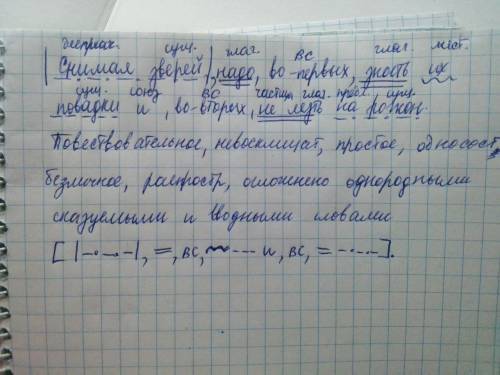 дееприч. сущ. глаг. ВС глаг. мест.
|Снимая зверей|, надо, во-первых, знать их
сущ. союз ВС частиц. глаг. предл. сущ.
повадки и, во-вторых, не лезть на рожон.
Повествовательное, невосклицат, простое, односост,
безличное, распростр, осложнено однородными
сказуемыми и вводными словами
[|-·-·-|, =, ВС, ~~--- и, ВС, = -·-·-].